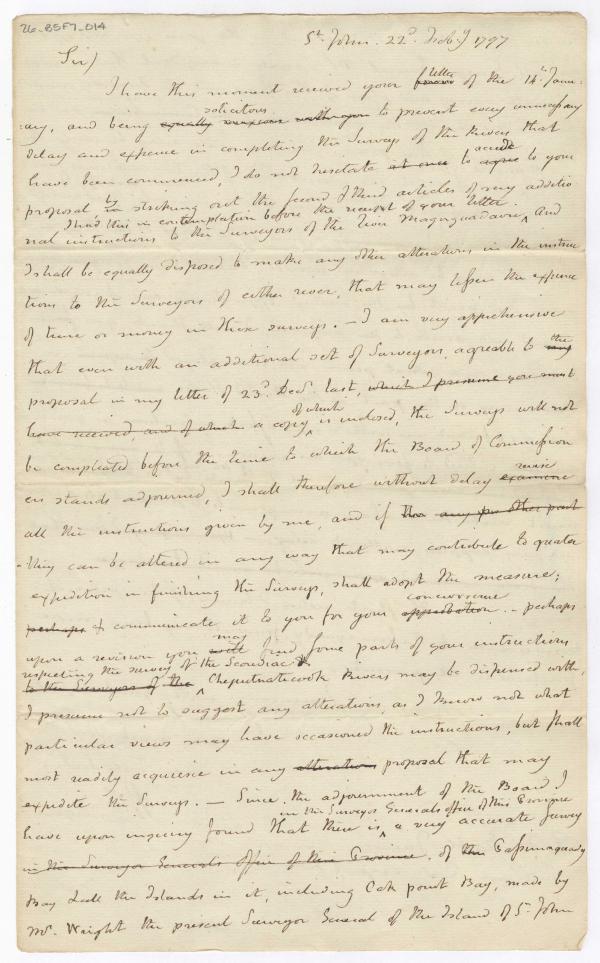 26-85F7-014
St. John. 22d. Feby 1797
Sir)
I have this moment received your letter of the 14th. Janu-
ary, and being equally solicitous with you to prevent every unnecessary
delay and expence in completing the Surveys of the Rivers that
have been commenced, I do not hesitate at once to agree accede to your
proposal, in by striking out the second & third articles of my additio
I had this in contemplation before the receipt of your letter.
nal instructions to the Surveyors of the river Magaguadavic ^ And
I shall be equally disposed to make any other alterations in the instruc
tions to the Surveyors of either river, that may lessen the expence
of time or money in these surveys. — I am very apprehensive
that even with an additional set of Surveyors, agreable to my the
proposal in my letter of 23d. Decr. last, which I presume you must
have received, and of which a copy ^ of which is inclosed, the Surveys will not
be compleated before the time to which the Board of Commission
ers stands adjourned, I shall therefore without delay examine revise
all the instructions given by me, and if any other part
they can be altered in any way that may contribute to greater
expedition in finishing the Surveys, shall adopt the measure;
perhaps & communicate it to you for your approbation concurrence. — perhaps
upon a revision you will may find some parts of your instructions
respecting the survey of the Scoudiac &
to the Surveyors of the ^ Cheputnatecook Rivers may be dispensed with,
I presume not to suggest any alterations, as I know not what
particular views may have occasioned the instructions, but shall
most readily acquiesce in any alterations proposal that may
expedite the Surveys. — Since the adjournment of the Board I
in the Surveyor Generals office of this Province
have upon inquiry found that there is ^ a very accurate survey
in the Surveyor Generals office of this Province, of the Passimaquady
Bay & all the Islands in it, including Cok point Bay, made by
Mr. Wright the present Surveyor General of the Island of St. John